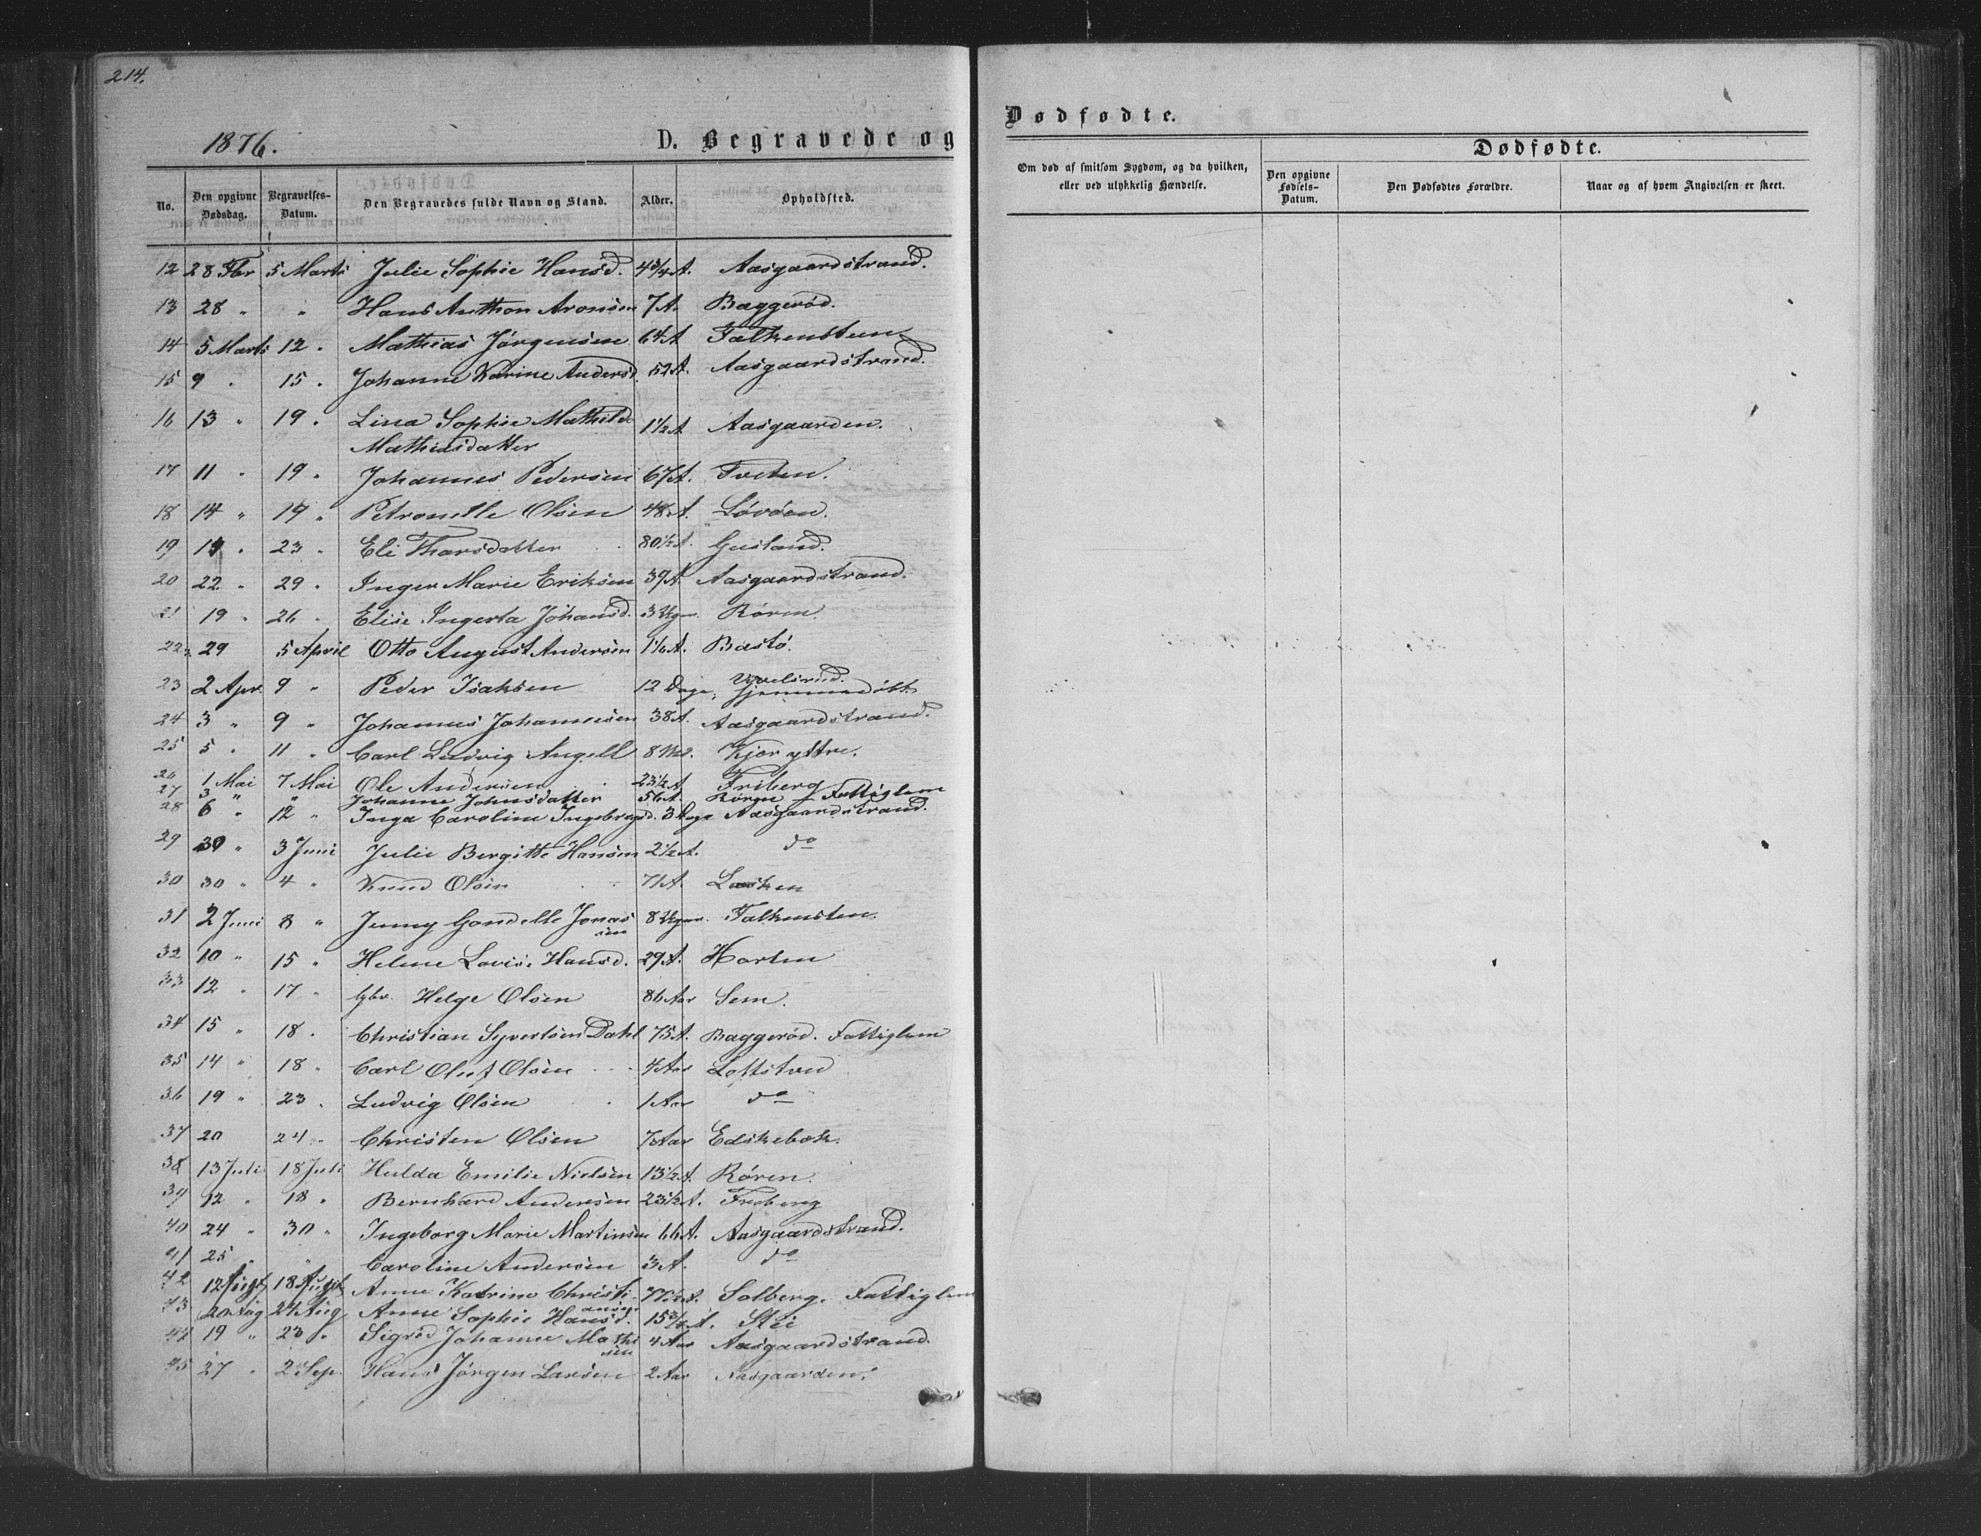 214.
1876.
D. Begravede og
Dødfødte.
No.
Den opgivne Dødsdag.
Begravelses-Datum.
Den Begravedes fulde Navn og Stand.
Alder.
Opholdsted.
Om død af smitsom Sygdom, og da hvilken, eller ved ulykkelig Hændelse.
Dødfødte.
Den opgivne Fødsels-Datum.
Den Dødfødtes Forældre.
Naar og af hvem Angivelsen er skeet.
12 28 Fbr 5 Marts Julie Sophie Hansd. 4 3/4 A. Aasgaardstrand.
13 28 " " Hans Anthon Aronsen 7 A. Baggerød.
14 5 Marts 12 " Mathias Jørgensen 64 A Falkensteen
15 9 " 15 " Johanne Karine Andersd. 52 A. Aasgaardstrand.
16 13 " 19 " Lina Sophie Mathilde 1 1/2 A Aasgaarden.
Mathiasdatter
17 11 " 19 " Johannes Pedersen 67 A. Foden.
18 14 " 19 " Petronelle Olsen 48 A. Løvøen.
19 19 " 23 " Eli Thorsdatter 80 1/2 A. Gusland.
20 22 " 29 " Inger Marie Eriksen 39 A. Aasgaardstrand.
21 19 " 26 " Elise Ingerta Johansd. 3 Ugr. Røren
22 29 5 April Otto August Andersen 1 1/6 A. Bastø.
23 2 Apr. 9 " Peder Isaksen 12 Dage,
24 3 " 9 " Johannes Johannesen 38 A. Aasgaardstrand.
25 5 " 11 " Carl Ludvig Angell 8 Md. Kjær yttre.
26 1 Mai 7 Mai Ole Andersen 23 1/2 A Friberg
27 3 " " Johanne Johnsdatter 56 A. Røren - Fattiglem
28 6 " 12 " Inga Caroline Ingebregd. 3 Dage Aasgaardstrand.
29 30 " 3 Juni Julie Bergitte Hansen 2 1/2 A. do
30 30 " 4 " Knud Olsen 71 A.
31 2 Juni 8 " Jenny Gondelle Jonas 8 Ugr. Falkensten.
sen
32 10 " 15 " Helene Lovise Hansd. 29 A. Horten
33 12 " 17 " Gbr. Helge Olsen 86 Aar Sem.
34 15 " 18 " Christian Syvertsen Dahl 75 A. Baggerød. Fattiglem
35 14 " 18 " Carl Oluf Olsen 4 Aar Loftstuu
36 19 " 23 " Ludvig Olsen 1 Aar do
37 20 24 " Christen Olsen 7 Aar Edskebæk.
38 13 Juli 18 Juli Hulda Emilie Nielsen 13 1/2 A Røren.
39 12 " 18 " Bernhard Andersen 23 1/2 A. Friberg
40 24 " 30 " Ingeborg Marie Martinsen 66 A. Aasgaardstrand.
41 25 " " Caroline Andersen 3 A. do
42 12 Augt 18 Augt Anne Katrine Christi- Solberg. Fattiglem
ansen
43 20 Aug 24 Aug Anne Sophie Hansd. 15 3/4 A. Stei
44 19 " 23 " Sigrid Johanne Mathi 4 Aar Aasgaardstrand.
sen
45 27 " 2 Sep. Hans Jørgen Larsen 2 Aar Aasgaarden.